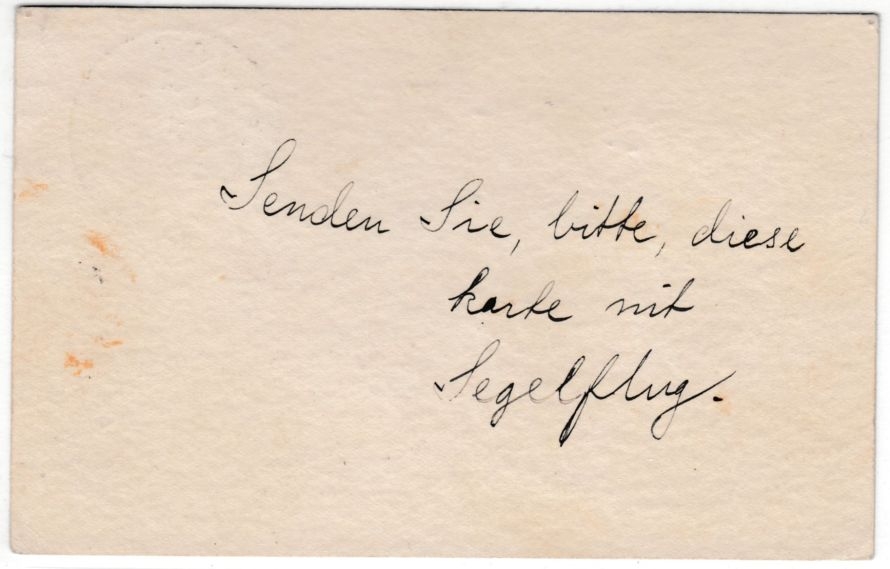 Senden Sie, bitte, diese
karte mit
Segelflug.